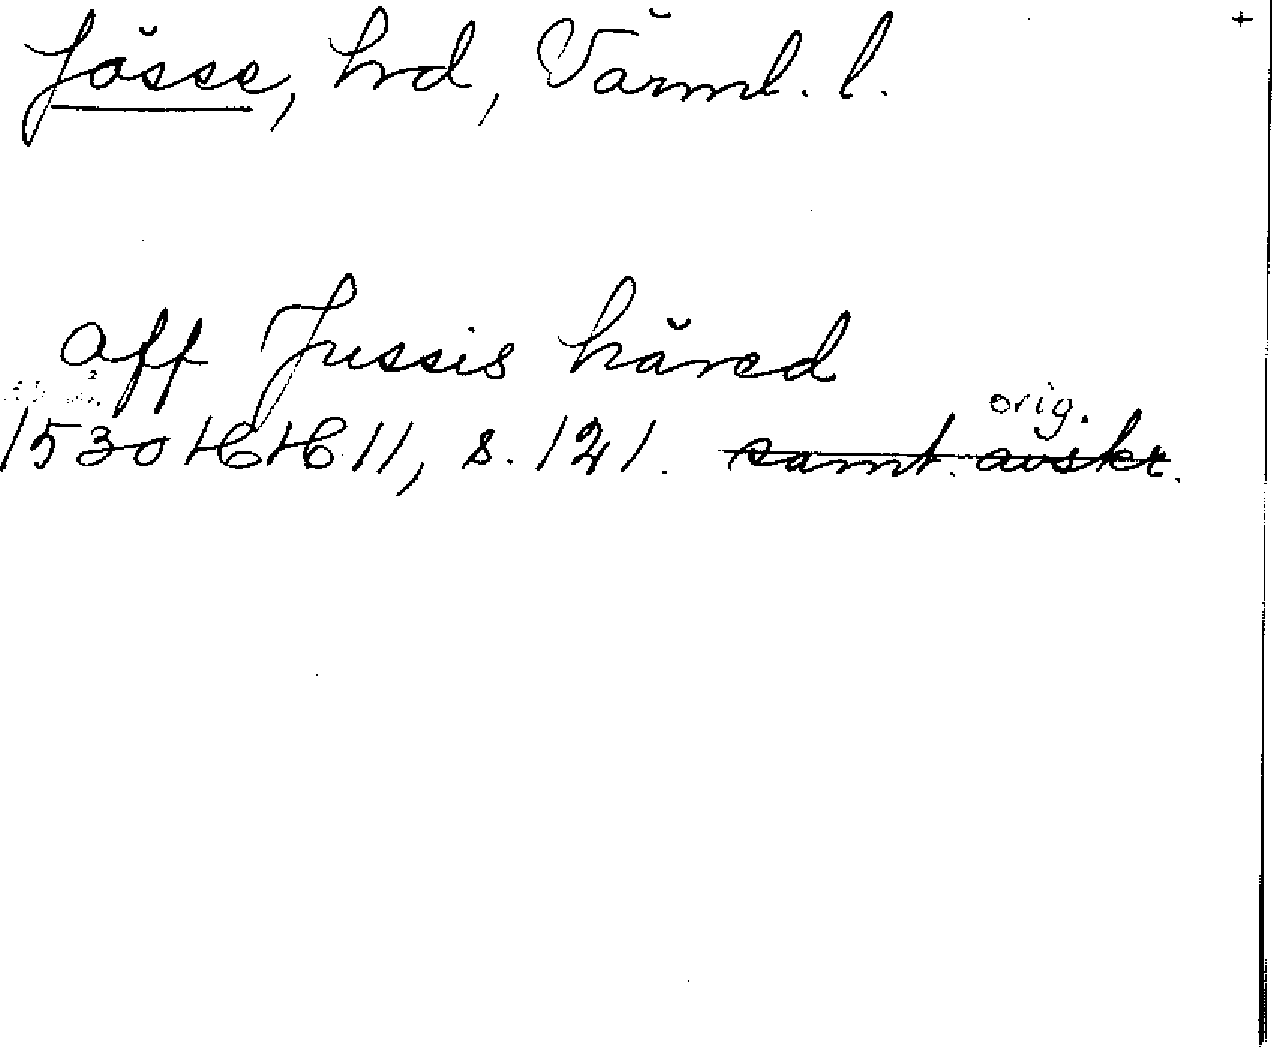 +
Jösse, hrd, Värml. l.
aff Jussis häred
orig.
1530 HH 11, s. 121. samt. avskr.